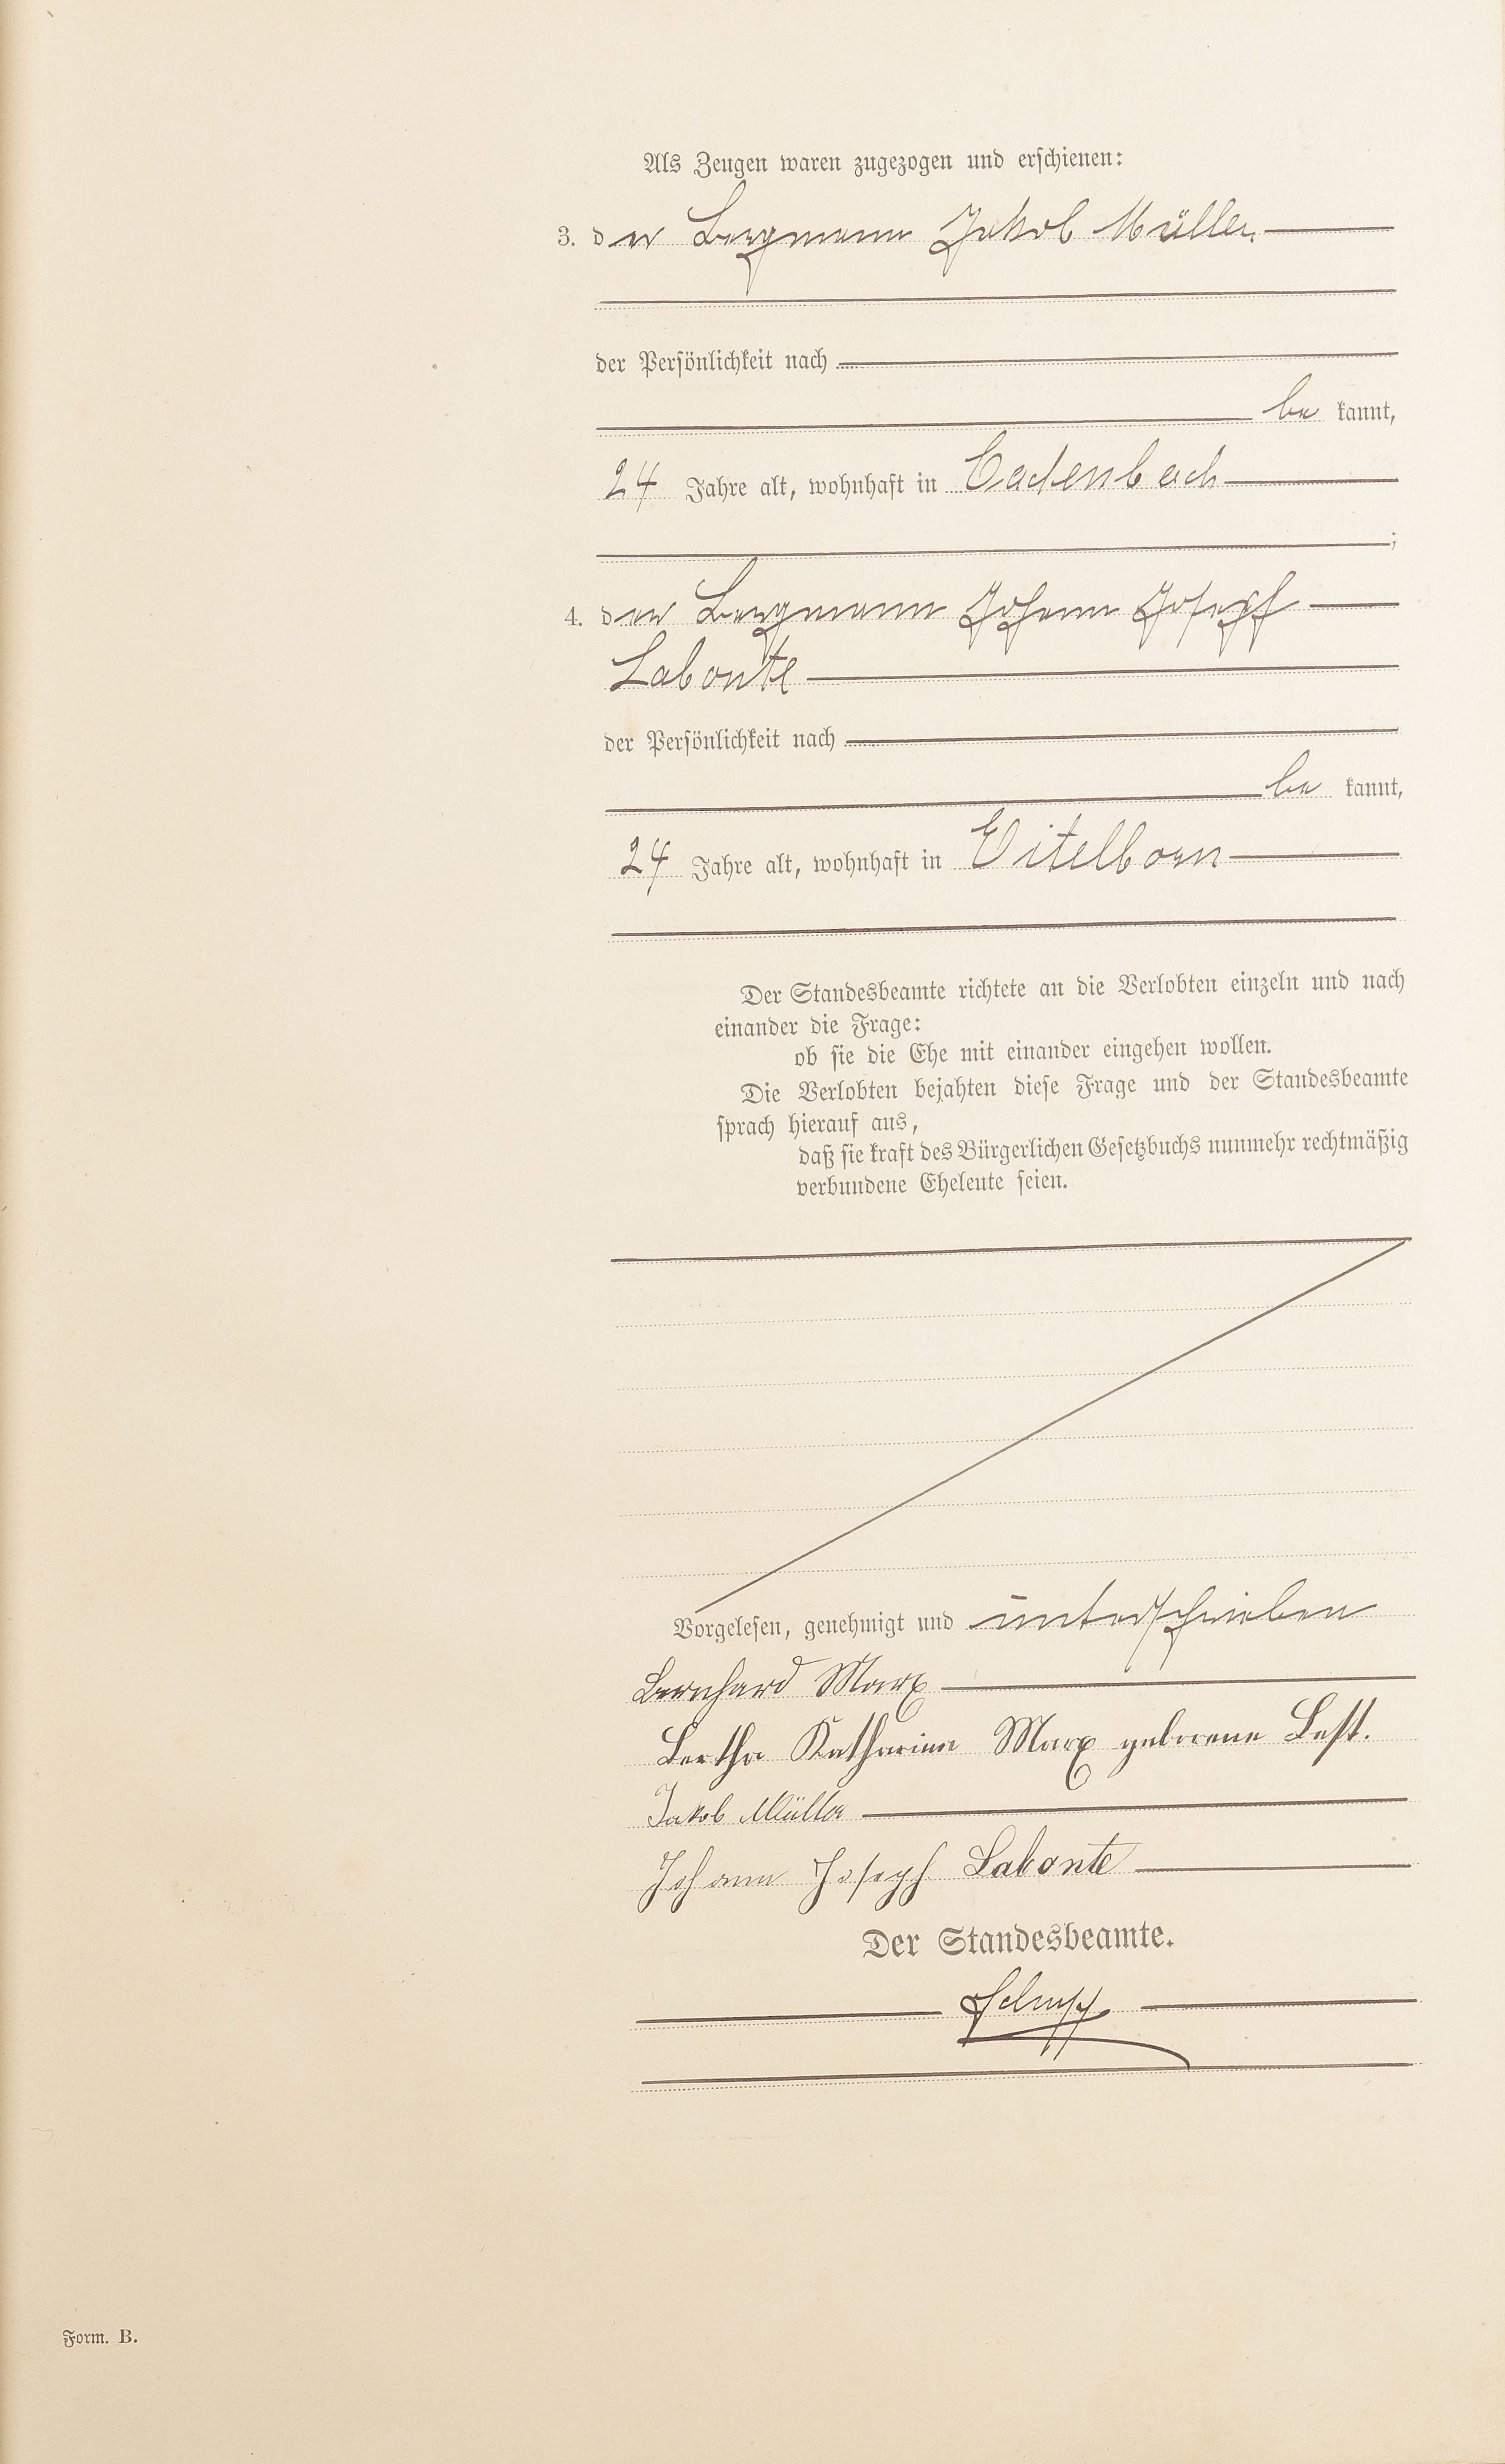 Als Zeugen waren zugezogen und erschienen:
3. der Bergmann Jakob Müller
der Persönlichkeit nach
be kannt,
24 Jahre alt, wohnhaft in Cadenbach
;
4. der Bergmann Johann Joseph
Labonte
der Persönlichkeit nach
be kannt,
24 Jahre alt, wohnhaft in Eitelborn
Der Standesbeamte richtete an die Verlobten einzeln und nach
einander die Frage:
ob sie die Ehe mit einander eingehen wollen.
Die Verlobten bejahten diese Frage und der Standesbeamte
sprach hierauf aus,
daß sie kraft des Bürgerlichen Gesetzbuchs nunmehr rechtmäßig
verbundene Eheleute seien.
Vorgelesen, genehmigt und unterschrieben
Bernhard Marx
Bertha Katharina Marx geborene Best.
Jakob Müller
Johann Joseph Labonte
Der Standesbeamte.
Form. B.